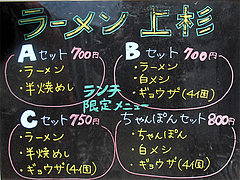 ラーメン 上杉
Aセット 700円
・ラーメン
・半焼めし
Bセット 700円
・ラーメン
・白メシ
・ギョウザ(4イ固)
ランチ
限定メニュー
Cセット 750円
・ラーメン
・半焼めし
・ギョウザ(4イ固)
ちゃんぽんセット 800円
・ちゃんぽん
・白メシ
・ギョウザ(4イ固)